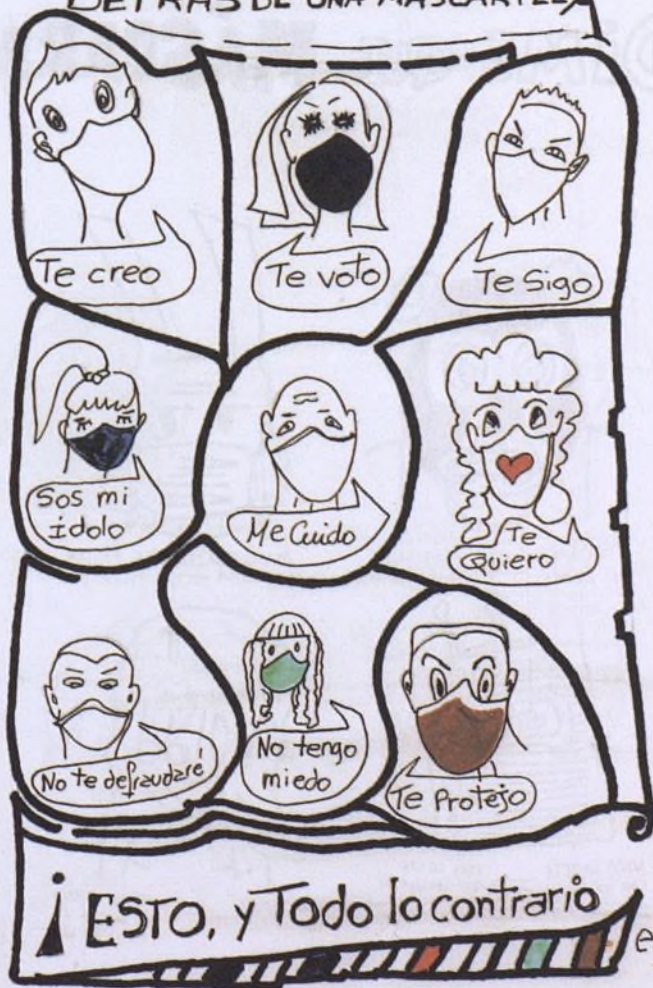 DETRAS DE UNA MASCARILLA
Te creo
Te voto
Te Sigo
Sos mi
ídolo
Me Cuido
Te
Quiero
No te defraudaré
No tengo
miedo
Te Protejo
¡ ESTO, y Todo lo contrario